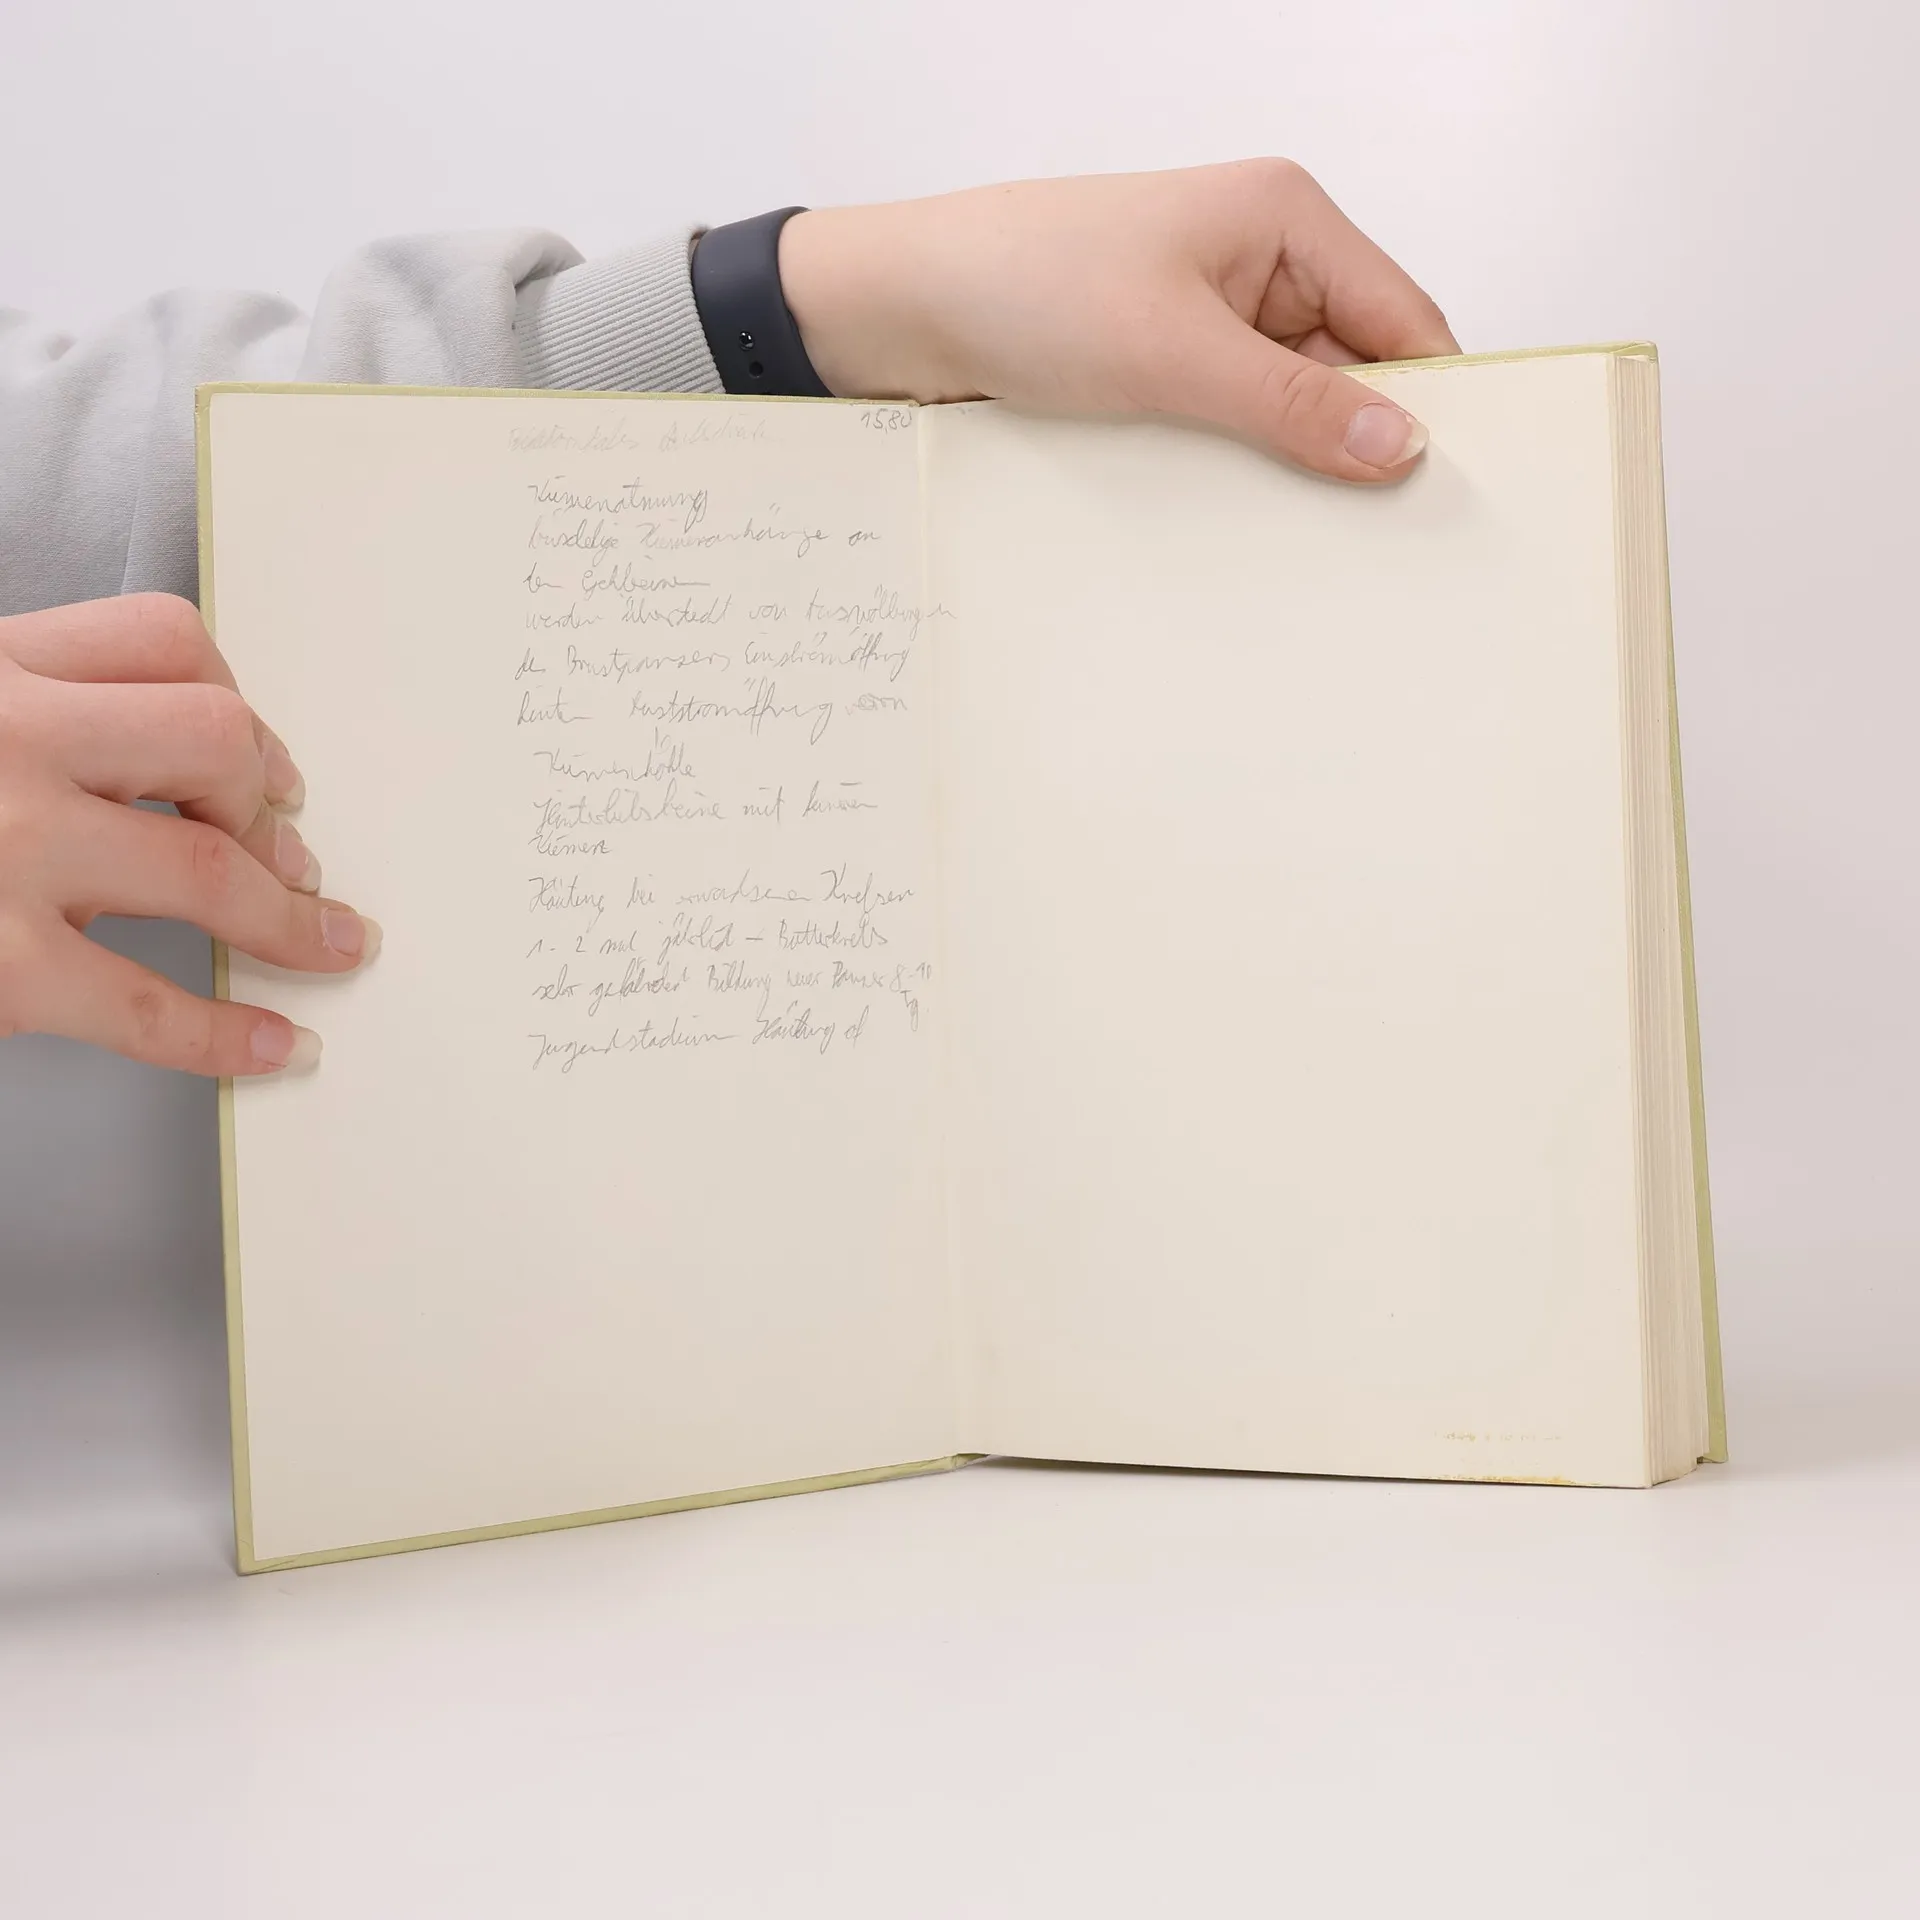 15,80
Kiemenatmung
büschelige Kiemenanhänge an
den Gehbeinen
werden überdeckt von Auswölbungen
des Brustpanzers Einströmöffnung
hinten Ausströmöffnung vorn
Kiemenhöhle
Hinterleibsbeine mit kurzen
Kiemen
Häutung bei erwachsenen Krebsen
1-2 mal jährlich → Butterkrebs
sehr gefährdet Bildung neuer Panzer 8-10
Tg.
Jugendstadium Häutung